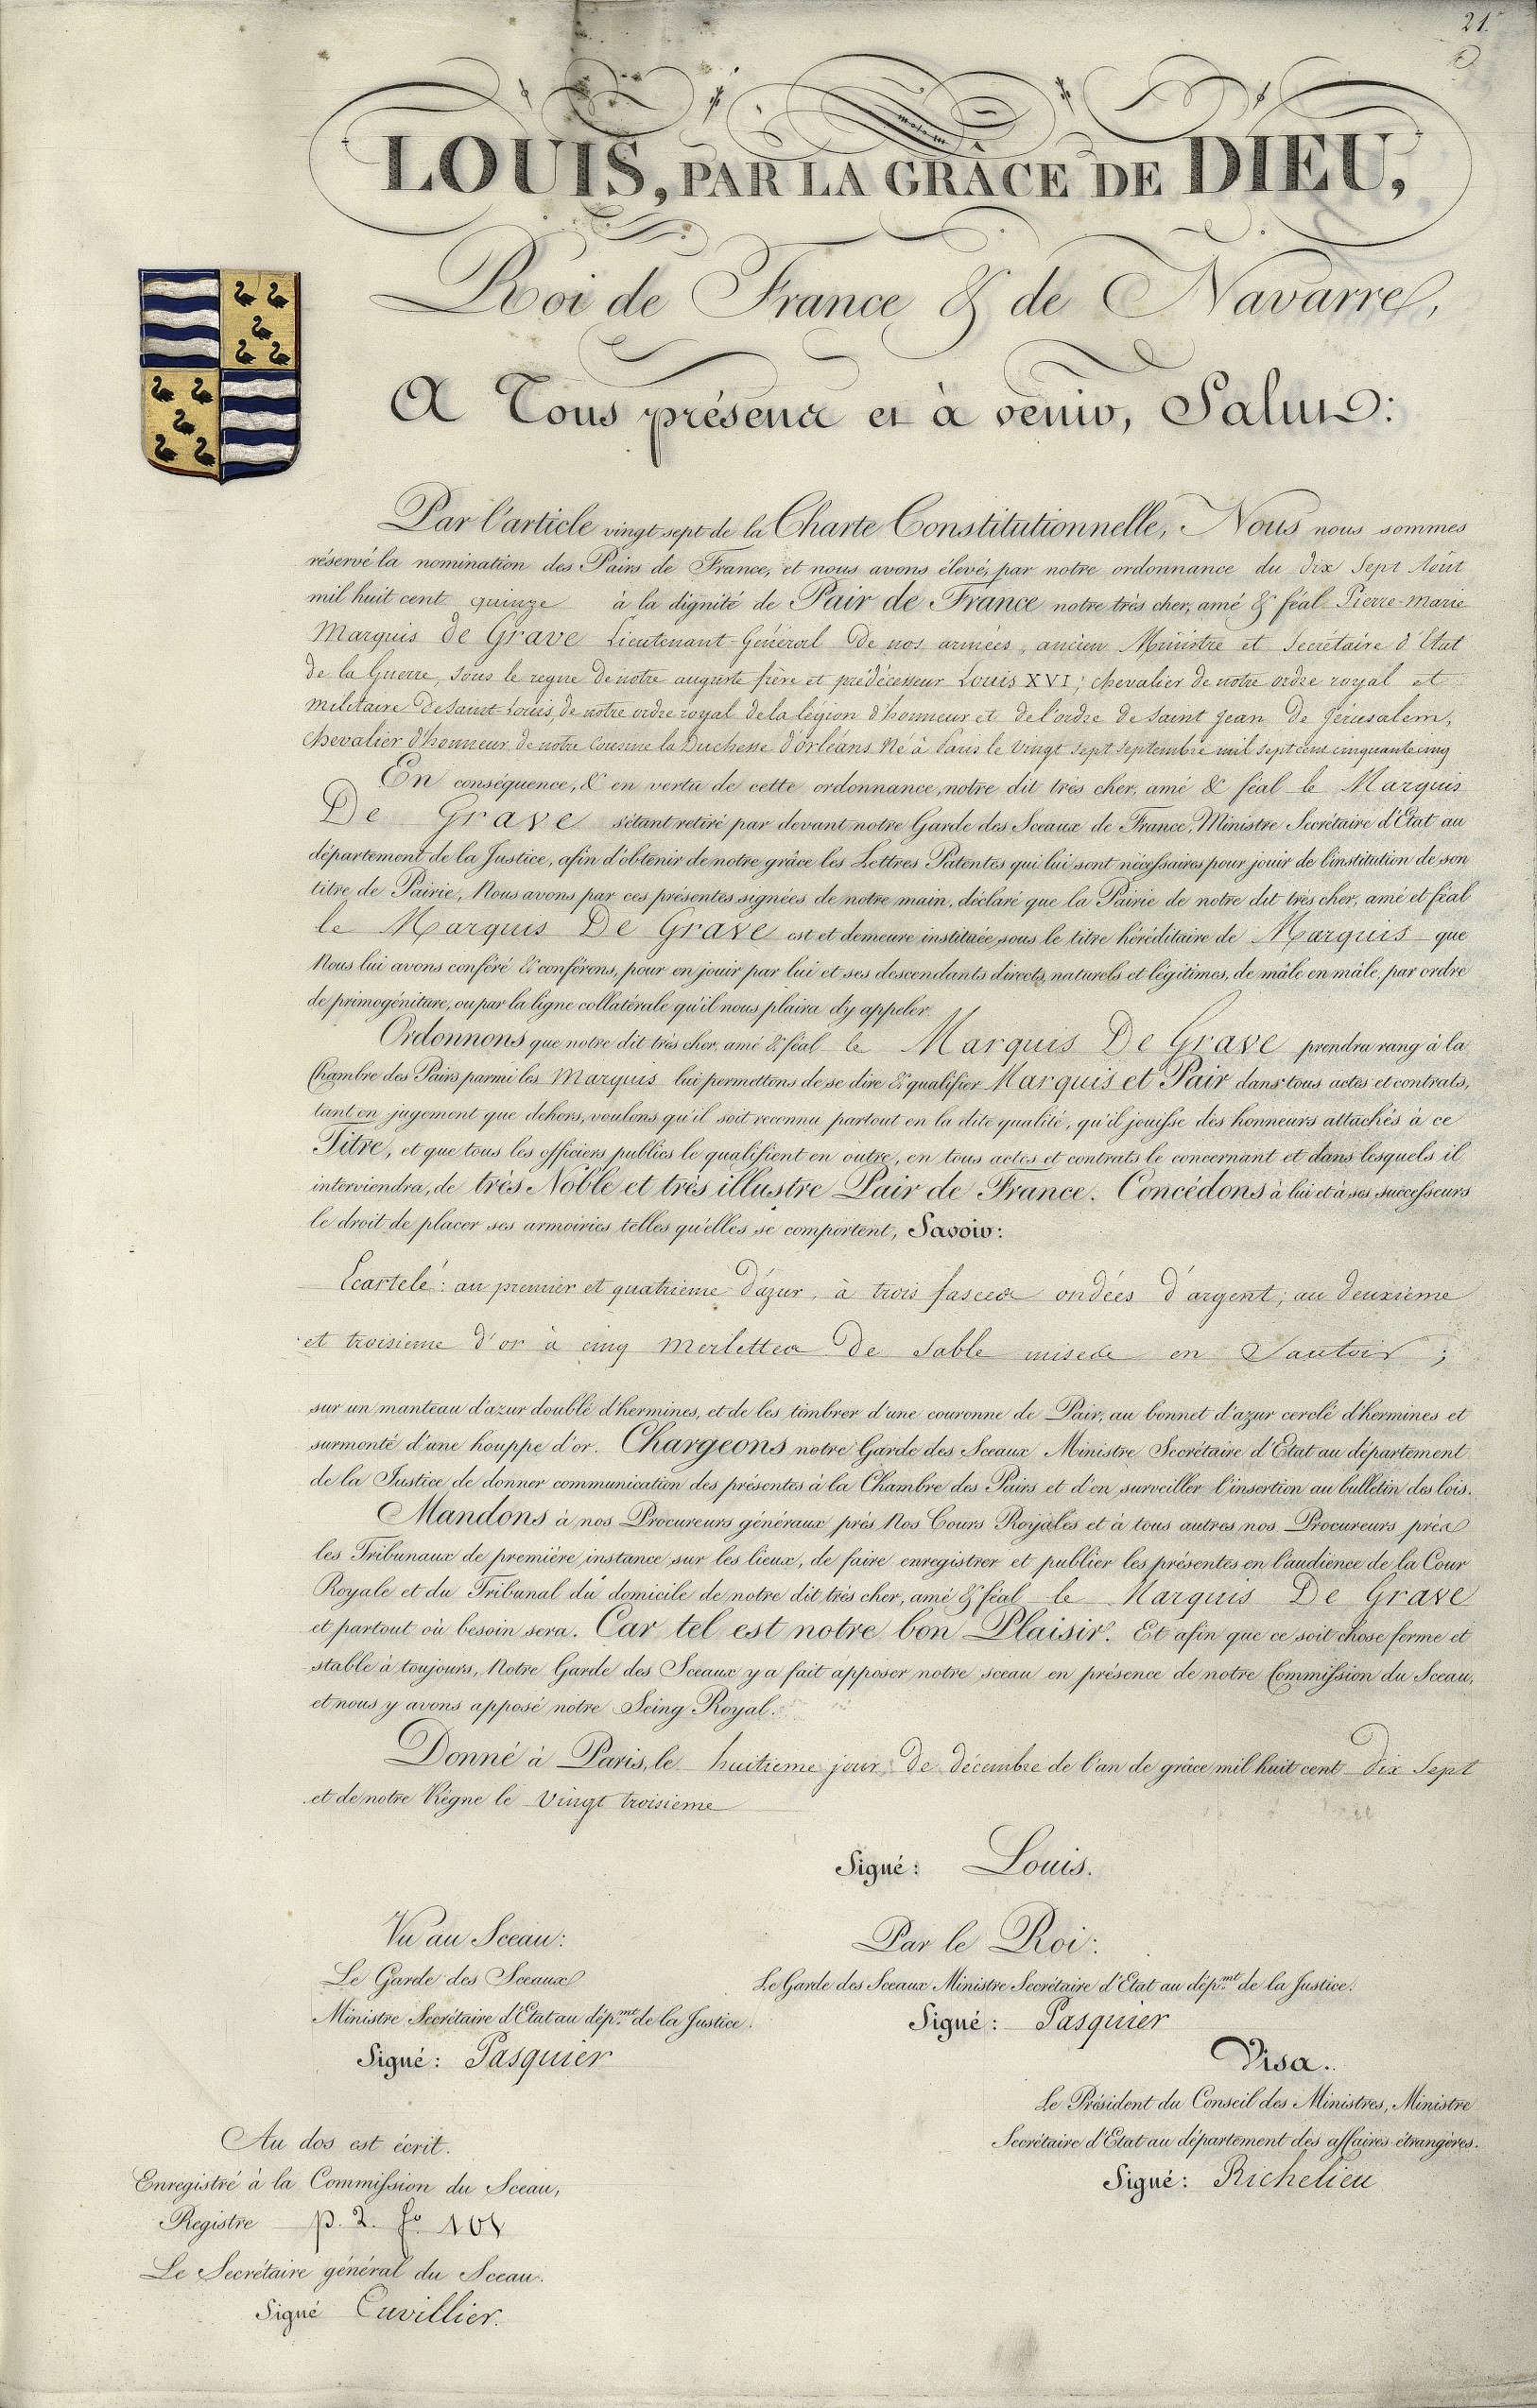 21.
LOUIS, PAR LA GRÂCE DE DIEU,
Roi de France & de Navarre,
A Tous présens et à venir, Salut:
Par l'article vingt sept de la Charte Constitutionnelle, Nous nous sommes
réservé la nomination des Pairs de France, et nous avons élevé, par notre ordonnance du dix Sept Août
mil huit cent quinze à la dignité de Pair de France notre très cher, amé & féal Pierre-Marie
Marquis De Grave Lieutenant-Général De nos armées, ancien Ministre et Secrétaire d'Etat
de la Guerre, sous le regne de notre auguste frère et prédécesseur Louis XVI; chevalier de notre ordre royal et
militaire de Saint-Louis, de notre ordre royal de la légion d'honneur et de l'ordre de Saint Jean De Jérusalem;
chevalier d'honneur de notre Cousine la Duchesse d'orléans Né à Paris le vingt sept septembre mil sept cent cinquante cinq
En conséquence, & en vertu de cette ordonnance, notre dit très cher, amé & féal le Marquis
De Grave s'étant retiré par devant notre Garde des Sceaux de France, Ministre Secrétaire d'Etat au
département de la Justice, afin d'obtenir de notre grâce les Lettres Patentes qui lui sont nécessaires pour jouir de l'institution de son
titre de Pairie, Nous avons par ces présentes signées de notre main, déclaré que la Pairie de notre dit très cher, amé et féal
le Marquis De Grave est et demeure instituée, sous le titre héréditaire de Marquis que
Nous lui avons conféré & conférons, pour en jouir par lui et ses descendants directs, naturels et légitimes, de mâle en mâle, par ordre
de primogéniture, ou par la ligne collatérale qu'il nous plaira d'y appeler.
Ordonnons que notre dit très cher, amé & féal le Marquis De Grave prendra rang à la
Chambre des Pairs parmi les Marquis lui permettons de se dire & qualifier Marquis et Pair dans tous actes et contrats,
tant en jugement que dehors, voulons qu'il soit reconnu partout en la dite qualité, qu'il jouisse des honneurs attachés à ce
Titre, et que tous les officiers publics le qualifient en outre, en tous actes et contrats le concernant et dans lesquels il
interviendra, de très Noble et très illustre Pair de France. Concédons à lui et à ses successeurs
le droit de placer ses armoiries telles qu'elles se comportent, Savoir:
Ecartelé: au premier et quatrieme d'azur, à trois fasces ondées d'argent; au deuxieme
et troisieme d'or à cinq merlettes De Sable mises en Sautoir;
sur un manteau d'azur doublé d'hermines, et de les timbrer d'une couronne de Pair, au bonnet d'azur cerclé d'hermines et
surmonté d'une houppe d'or. Chargeons notre Garde des Sceaux Ministre Secrétaire d'Etat au département
de la Justice de donner communication des présentes à la Chambre des Pairs et d'en surveiller l'insertion au bulletin des lois.
Mandons à nos Procureurs généraux près Nos Cours Royales et à tous autres nos Procureurs près
les Tribunaux de première instance sur les lieux, de faire enregistrer et publier les présentes en l'audience de la Cour
Royale et du Tribunal du domicile de notre dit très cher, amé & féal le Marquis De Grave
et partout où besoin sera. Car tel est notre bon Plaisir. Et afin que ce soit chose ferme et
stable à toujours, Notre Garde des Sceaux y a fait apposer notre sceau en présence de notre Commission du Sceau,
et nous y avons apposé notre Seing Royal.
Donné à Paris, le huitieme jour De décembre de l'an de grâce mil huit cent Dix Sept
et de notre Règne le Vingt troisieme
Signé: Louis.
Vu au Sceau:
Le Garde des Sceaux
Ministre Secrétaire d'Etat au dép.mt de la Justice.
Signé: Pasquier
Par le Roi:
Le Garde des Sceaux Ministre Secrétaire d'Etat au dép.mt de la Justice.
Signé: Pasquier
Visa.
Le Président du Conseil des Ministres, Ministre
Secrétaire d'Etat au département des affaires étrangères.
Signé: Richelieu
Au dos est écrit.
Enregistré à la Commission du Sceau,
Registre p. 2. fo
Le Secrétaire général du Sceau.
Signé Cuvillier.